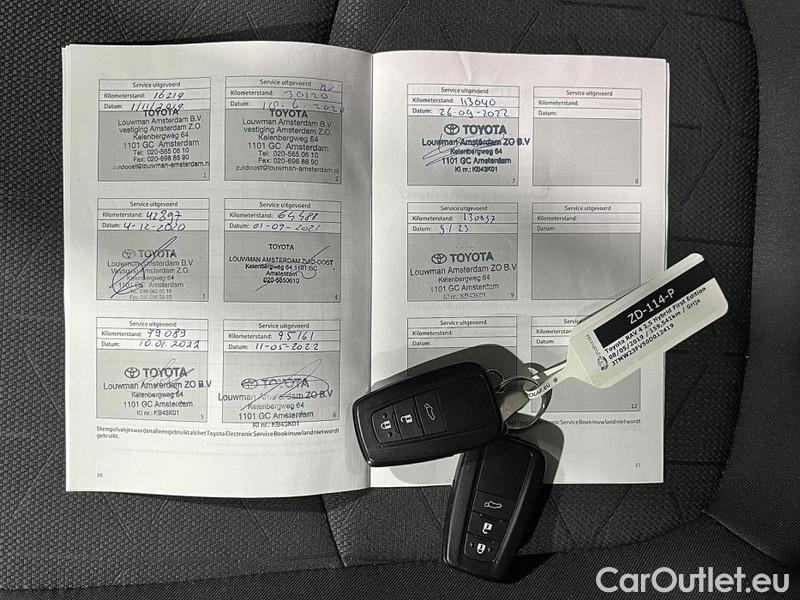 Service uitgevoerd
Kilometerstand: 16219
Datum: 1/11/2019
TOYOTA
Louwman Amsterdam B.V.
vestiging Amsterdam Z.O.
Keienbergweg 64
1101 GC Amsterdam
Tel: 020-565 06 10
Fax: 020-696 86 90
zuidoost@louwman-amsterdam.nl
1
Service uitgevoerd
Kilometerstand: 30120
Datum: 6-2020
TOYOTA
Louwman Amsterdam B.V.
vestiging Amsterdam Z.O.
Keienbergweg 64
1101 GC Amsterdam
Tel: 020-565 06 10
Fax: 020-696 86 90
zuidoost@louwman-amsterdam.nl
2
Service uitgevoerd
Kilometerstand: 42897
Datum: 4-12-2020
TOYOTA
Louwman Amsterdam B.V.
Vestiging Amsterdam Z.O.
Keienbergweg 64
1101 GC Amsterdam
3
Service uitgevoerd
Kilometerstand: 64488
Datum: 01-09-2021
TOYOTA
LOUWMAN AMSTERDAM ZUID-OOST
Keienbergweg 64 1101 GC
Amsterdam
020-5650610
4
Service uitgevoerd
Kilometerstand: 79089
Datum: 10.01.2022
TOYOTA
Louwman Amsterdam ZO B.V
Keienbergweg 64
1101 GC Amsterdam
Kl nr.: KB43K01
5
Service uitgevoerd
Kilometerstand: 95161
Datum: 11-05-2022
TOYOTA
Louwman Amsterdam ZO B.V
Keienbergweg 64
1101 GC Amsterdam
Kl nr.: KB43K01
6
Stempelvakjes worden alleen gebruikt als het Toyota Electronic Service Book in uw land niet wordt
gebruikt.
26
Service uitgevoerd
Kilometerstand: 113040
Datum: 26-09-2022
TOYOTA
Louwman Amsterdam ZO B.V
Keienbergweg 64
1101 GC Amsterdam
Kl nr.: KB43K01
7
Service uitgevoerd
Kilometerstand:
Datum:
8
Service uitgevoerd
Kilometerstand:
Datum:
TOYOTA
Louwman Amsterdam ZO B.V
Keienbergweg 64
1101 GC Amsterdam
Kl nr.: KB43K01
9
Service uitgevoerd
Kilometerstand:
Datum:
Service uitgevoerd
12
27
ZD-114-P
Toyota RAV 4 2.5 Hybrid First Edition
08/05/2019 / 159.541km / Grijs
JTMW23FV500012419
CarOutlet.eu